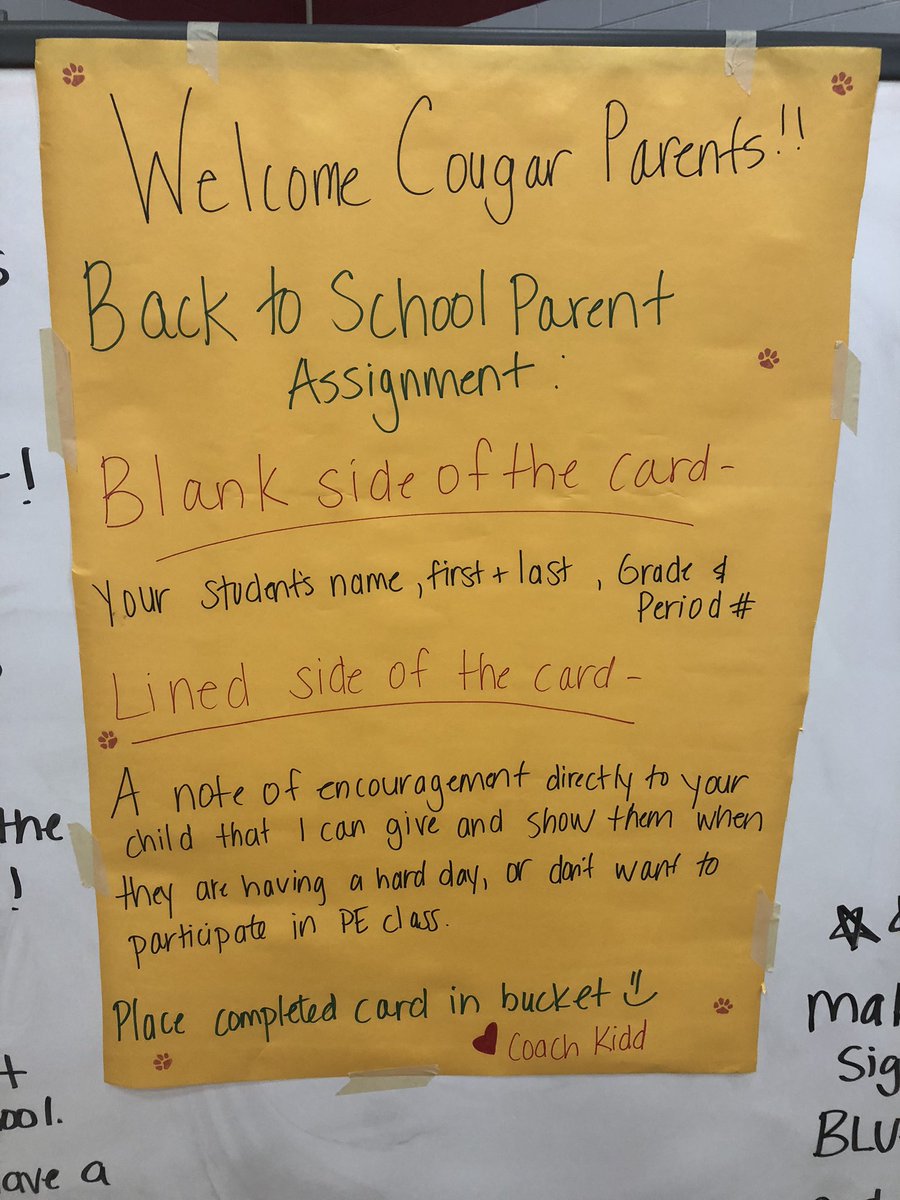 Welcome Cougar Parents!!
Back to School Parent
Assignment:
Blank side of the card-
Your student's name, first + last, Grade &
Period #
Lined side of the card-
A note of encouragement directly to your
child that I can give and show them when
they are having a hard day, or don't want to
participate in PE class.
Place completed card in bucket
Coach Kidd
the
!
ool.
ave a
Sig
BLU